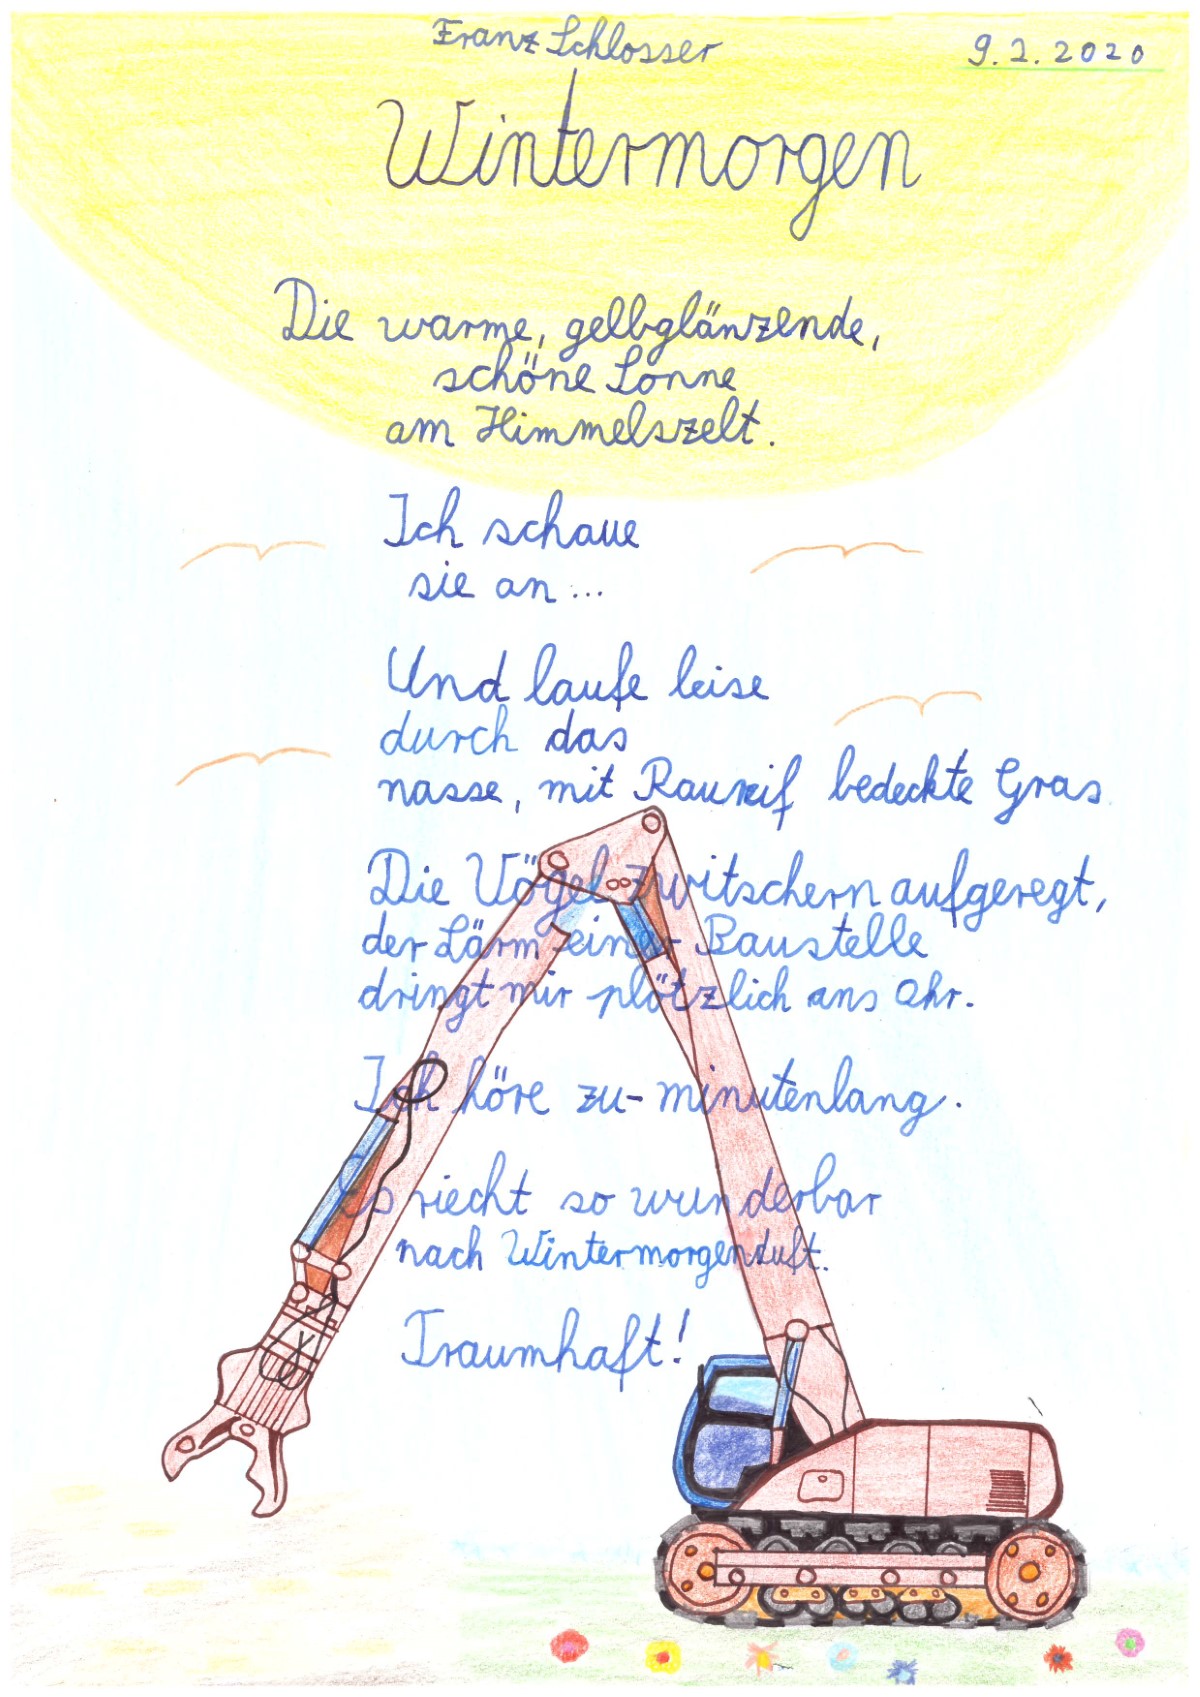 Franz Schlosser
9.2.2020
Wintermorgen
Die warme, gelbglänzende,
schöne Sonne
am Himmelszelt.
Ich schaue
sie an...
Und laufe leise
durch das
nasse, mit Raureif bedeckte Gras
Die Vögel zwitschern aufgeregt,
der Lärm einer Baustelle
dringt mir plötzlich ans Ohr.
Ich höre zu- minutenlang.
Es riecht so wunderbar
nach Wintermorgenduft.
Traumhaft!